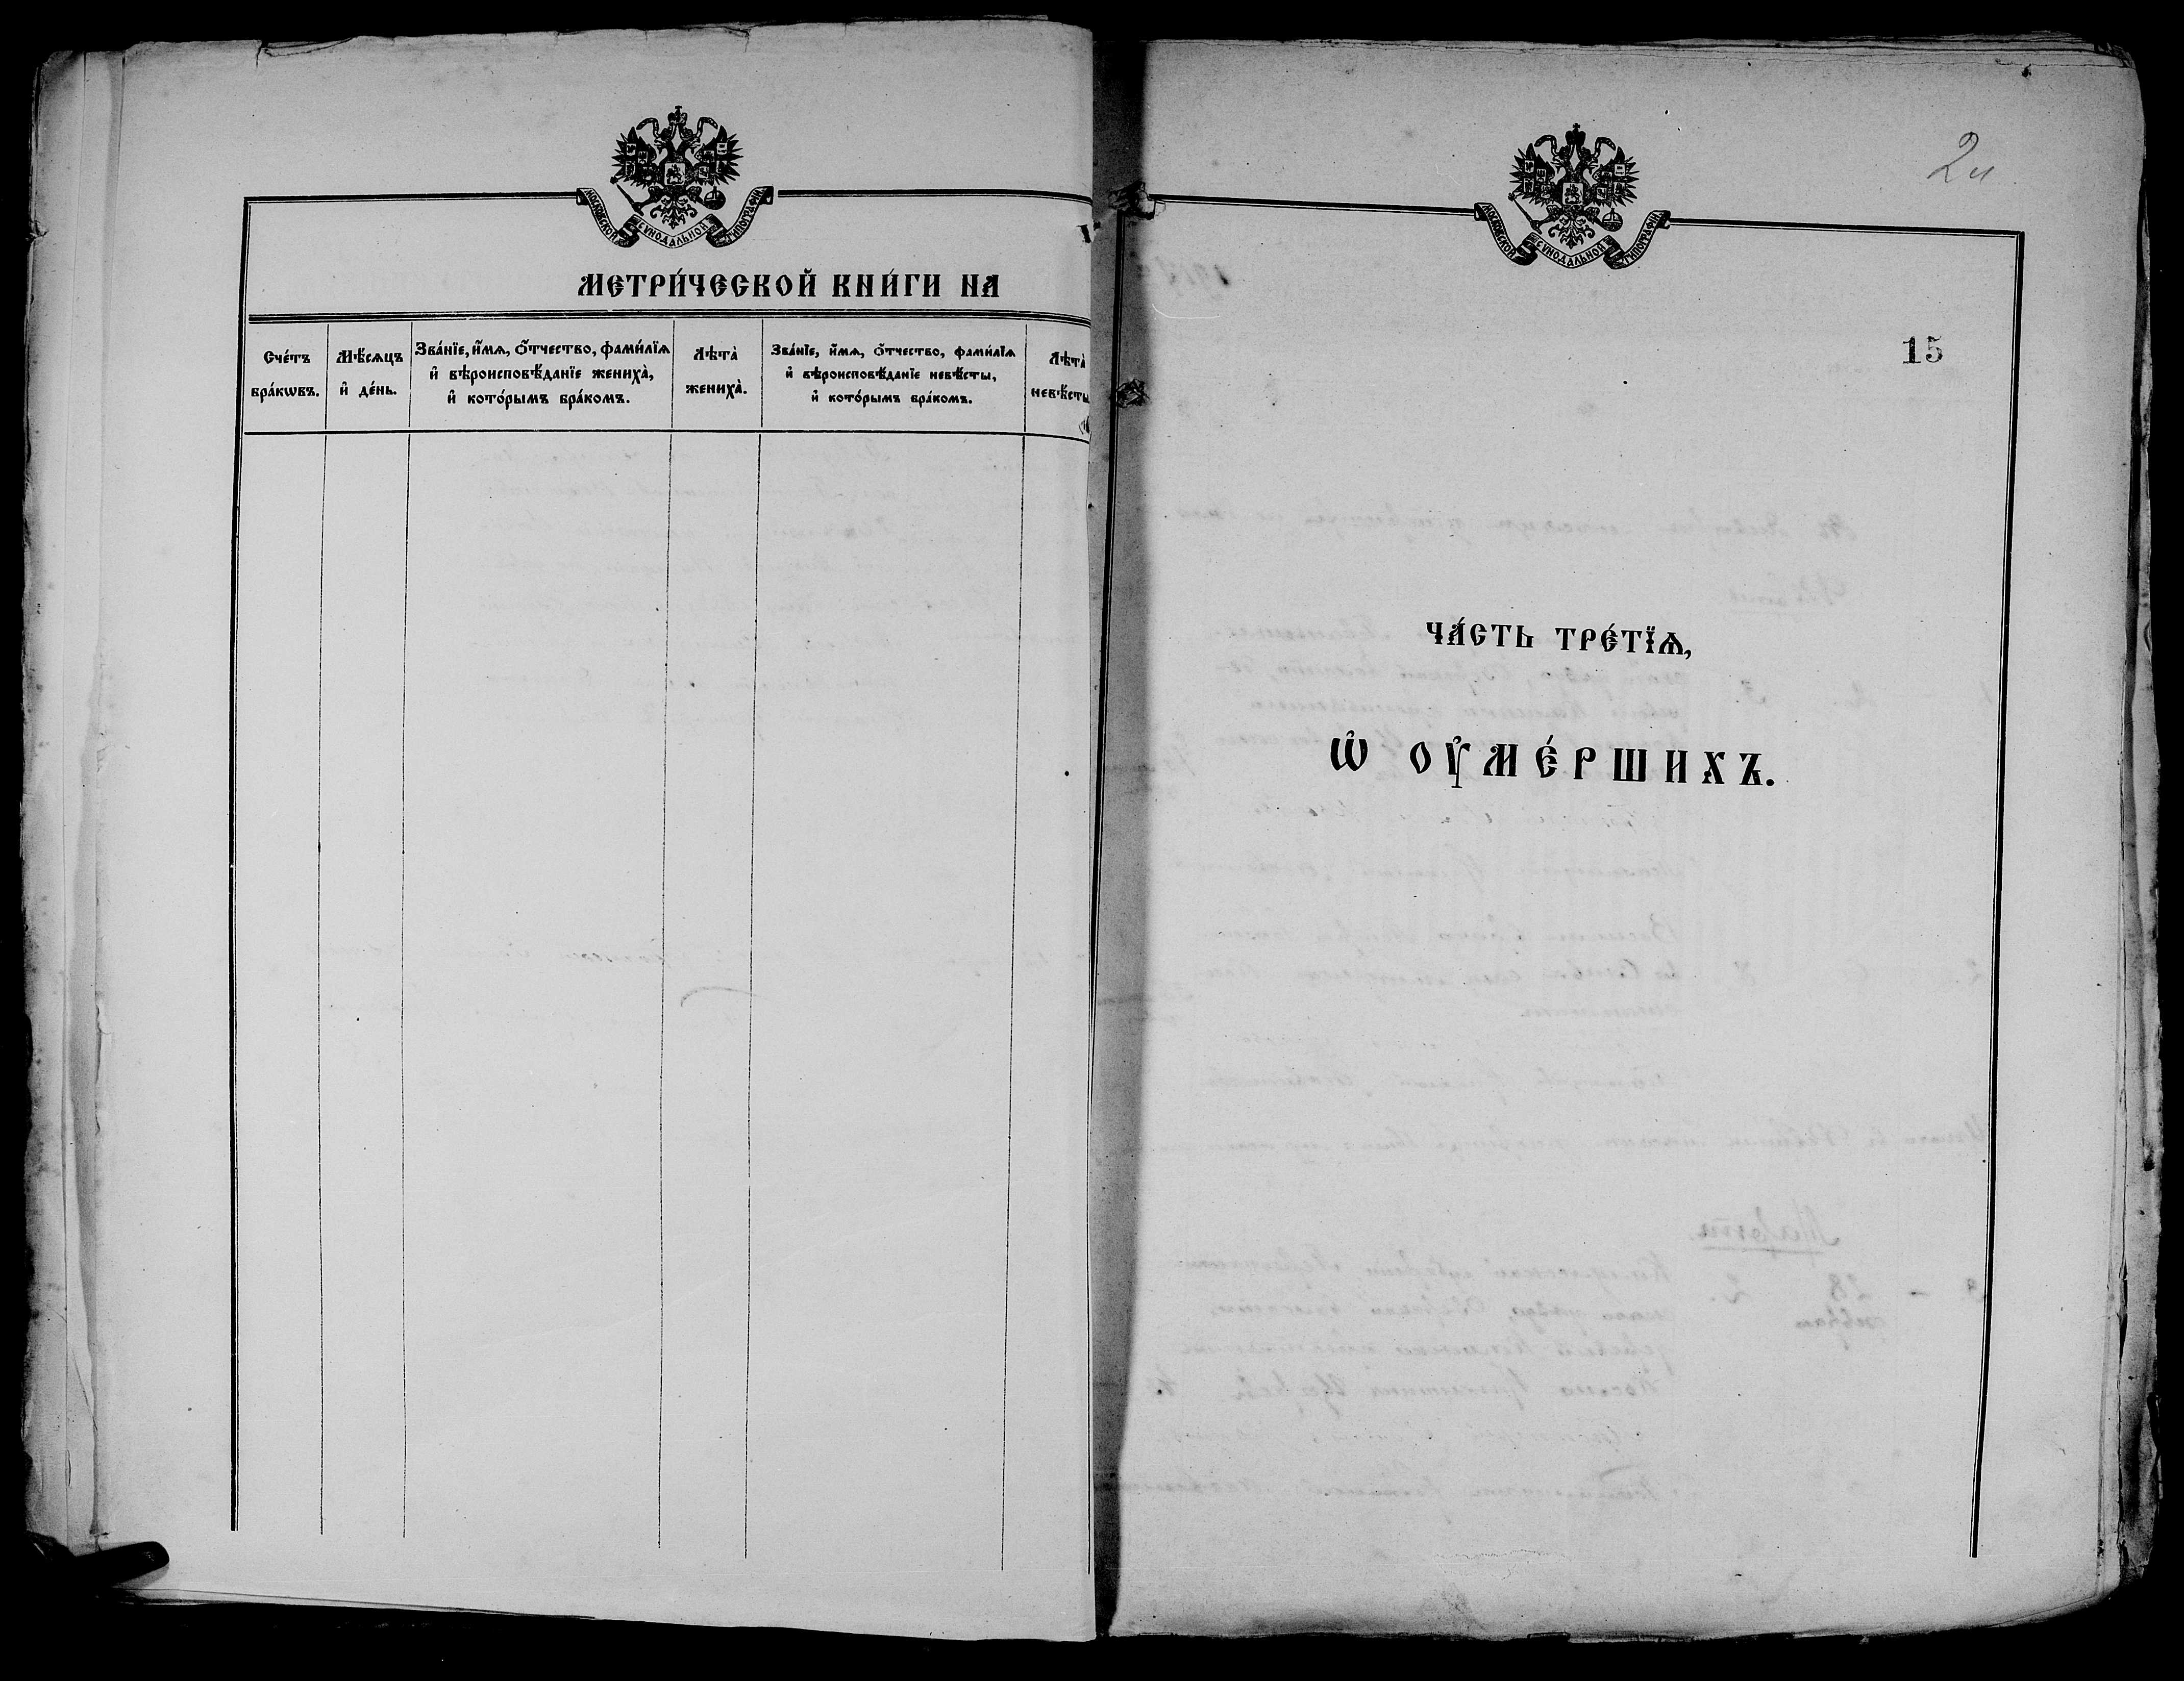 МОСКОВСКОЙ СѴНОДАЛЬНОЙ ТИПОГРАФІИ
МЕТРИ́ЧЕСКОЙ КНИ́ГИ НА
Сче́тъ
бра́кѡвъ.
Мѣ́сѧцъ
и҆ де́нь.
Зва́нїе, и҆́мѧ, ѻ҆́тчество, фами́лїѧ
и҆ вѣроисповѣ́данїе жениха̀,
и҆ кото́рымъ бра́комъ.
Лѣта̀
жениха̀.
Зва́нїе, и҆́мѧ, ѻ҆́тчество, фами́лїѧ
и҆ вѣроисповѣ́данїе невѣ́сты,
и҆ кото́рымъ бра́комъ.
Лѣта̀
невѣ́сты
МОСКОВСКОЙ СѴНОДАЛЬНОЙ ТИПОГРАФІИ
15
ЧА́СТЬ ТРЕ́ТЇѦ,
Ѡ҆ ОУ҆МЕ́РШИХЪ.